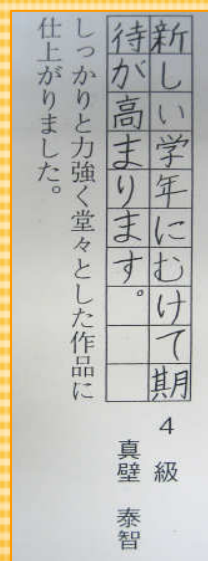 新しい学年にむけて期
待が高まります。
4級
真壁 泰智
しっかりと力強く堂々とした作品に
仕上がりました。